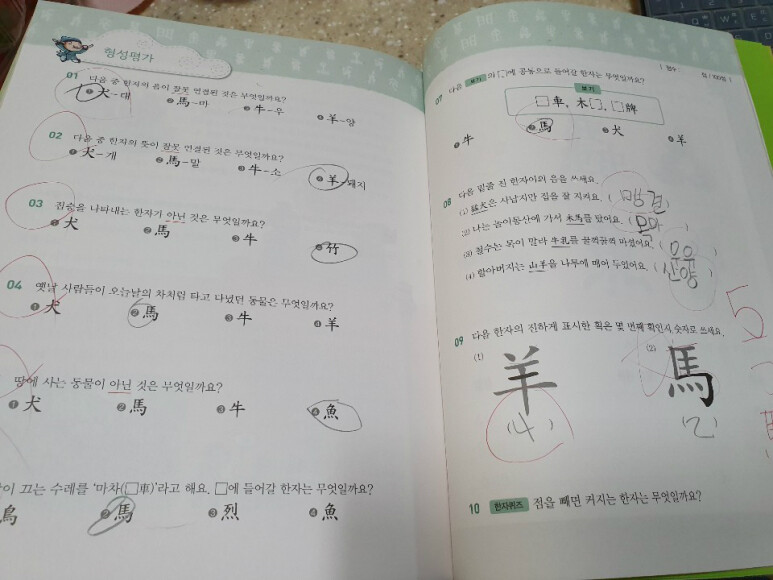 형성평가
01 다음 중 한자의 음이 잘못 연결된 것은 무엇일까요?
❶ 犬-대 ❷ 馬-마 ❸ 牛-우 ❹ 羊-양
02 다음 중 한자의 뜻이 잘못 연결된 것은 무엇일까요?
❶ 犬-개 ❷ 馬-말 ❸ 牛-소 ❹ 羊-돼지
03 짐승을 나타내는 한자가 아닌 것은 무엇일까요?
❶ 犬 ❷ 馬 ❸ 牛 ❹ 竹
04 옛날 사람들이 오늘날의 차처럼 타고 다녔던 동물은 무엇일까요?
❶ 犬 ❷ 馬 ❸ 牛 ❹ 羊
땅에 사는 동물이 아닌 것은 무엇일까요?
❶ 犬 ❷ 馬 ❸ 牛 ❹ 魚
이 끄는 수레를 '마차(□車)'라고 해요. □에 들어갈 한자는 무엇일까요?
鳥 ❷ 馬 ❸ 烈 ❹ 魚
[점수: 점/100점]
07 다음 보기 의 □에 공통으로 들어갈 한자는 무엇일까요?
보기
□車, 木□, □牌
❶ 牛 ❷ 馬 ❸ 犬 ❹ 羊
08 다음 밑줄 친 한자어의 음을 쓰세요.
(1) 猛犬은 사납지만 집을 잘 지켜요. (맹견)
(2) 나는 놀이동산에 가서 木馬를 탔어요. (목마)
(3) 철수는 목이 말라 牛乳를 꿀꺽꿀꺽 마셨어요. (우유)
(4) 할아버지는 山羊을 나무에 매어 두었어요. (산양)
09 다음 한자의 진하게 표시한 획은 몇 번째 획인지 숫자로 쓰세요.
(1) (2)
羊 馬
(4) (2)
10 한자퀴즈 점을 빼면 커지는 한자는 무엇일까요?